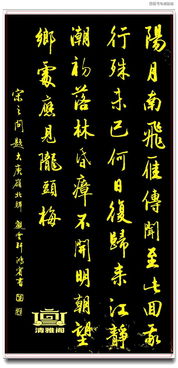 陽月南飛雁傳聞至此回我
行殊未已何日復歸来江靜
潮初落林昏瘴不開明朝望
鄉處應見隴頭梅
宋之问题大庾岭北驿
清雅阁